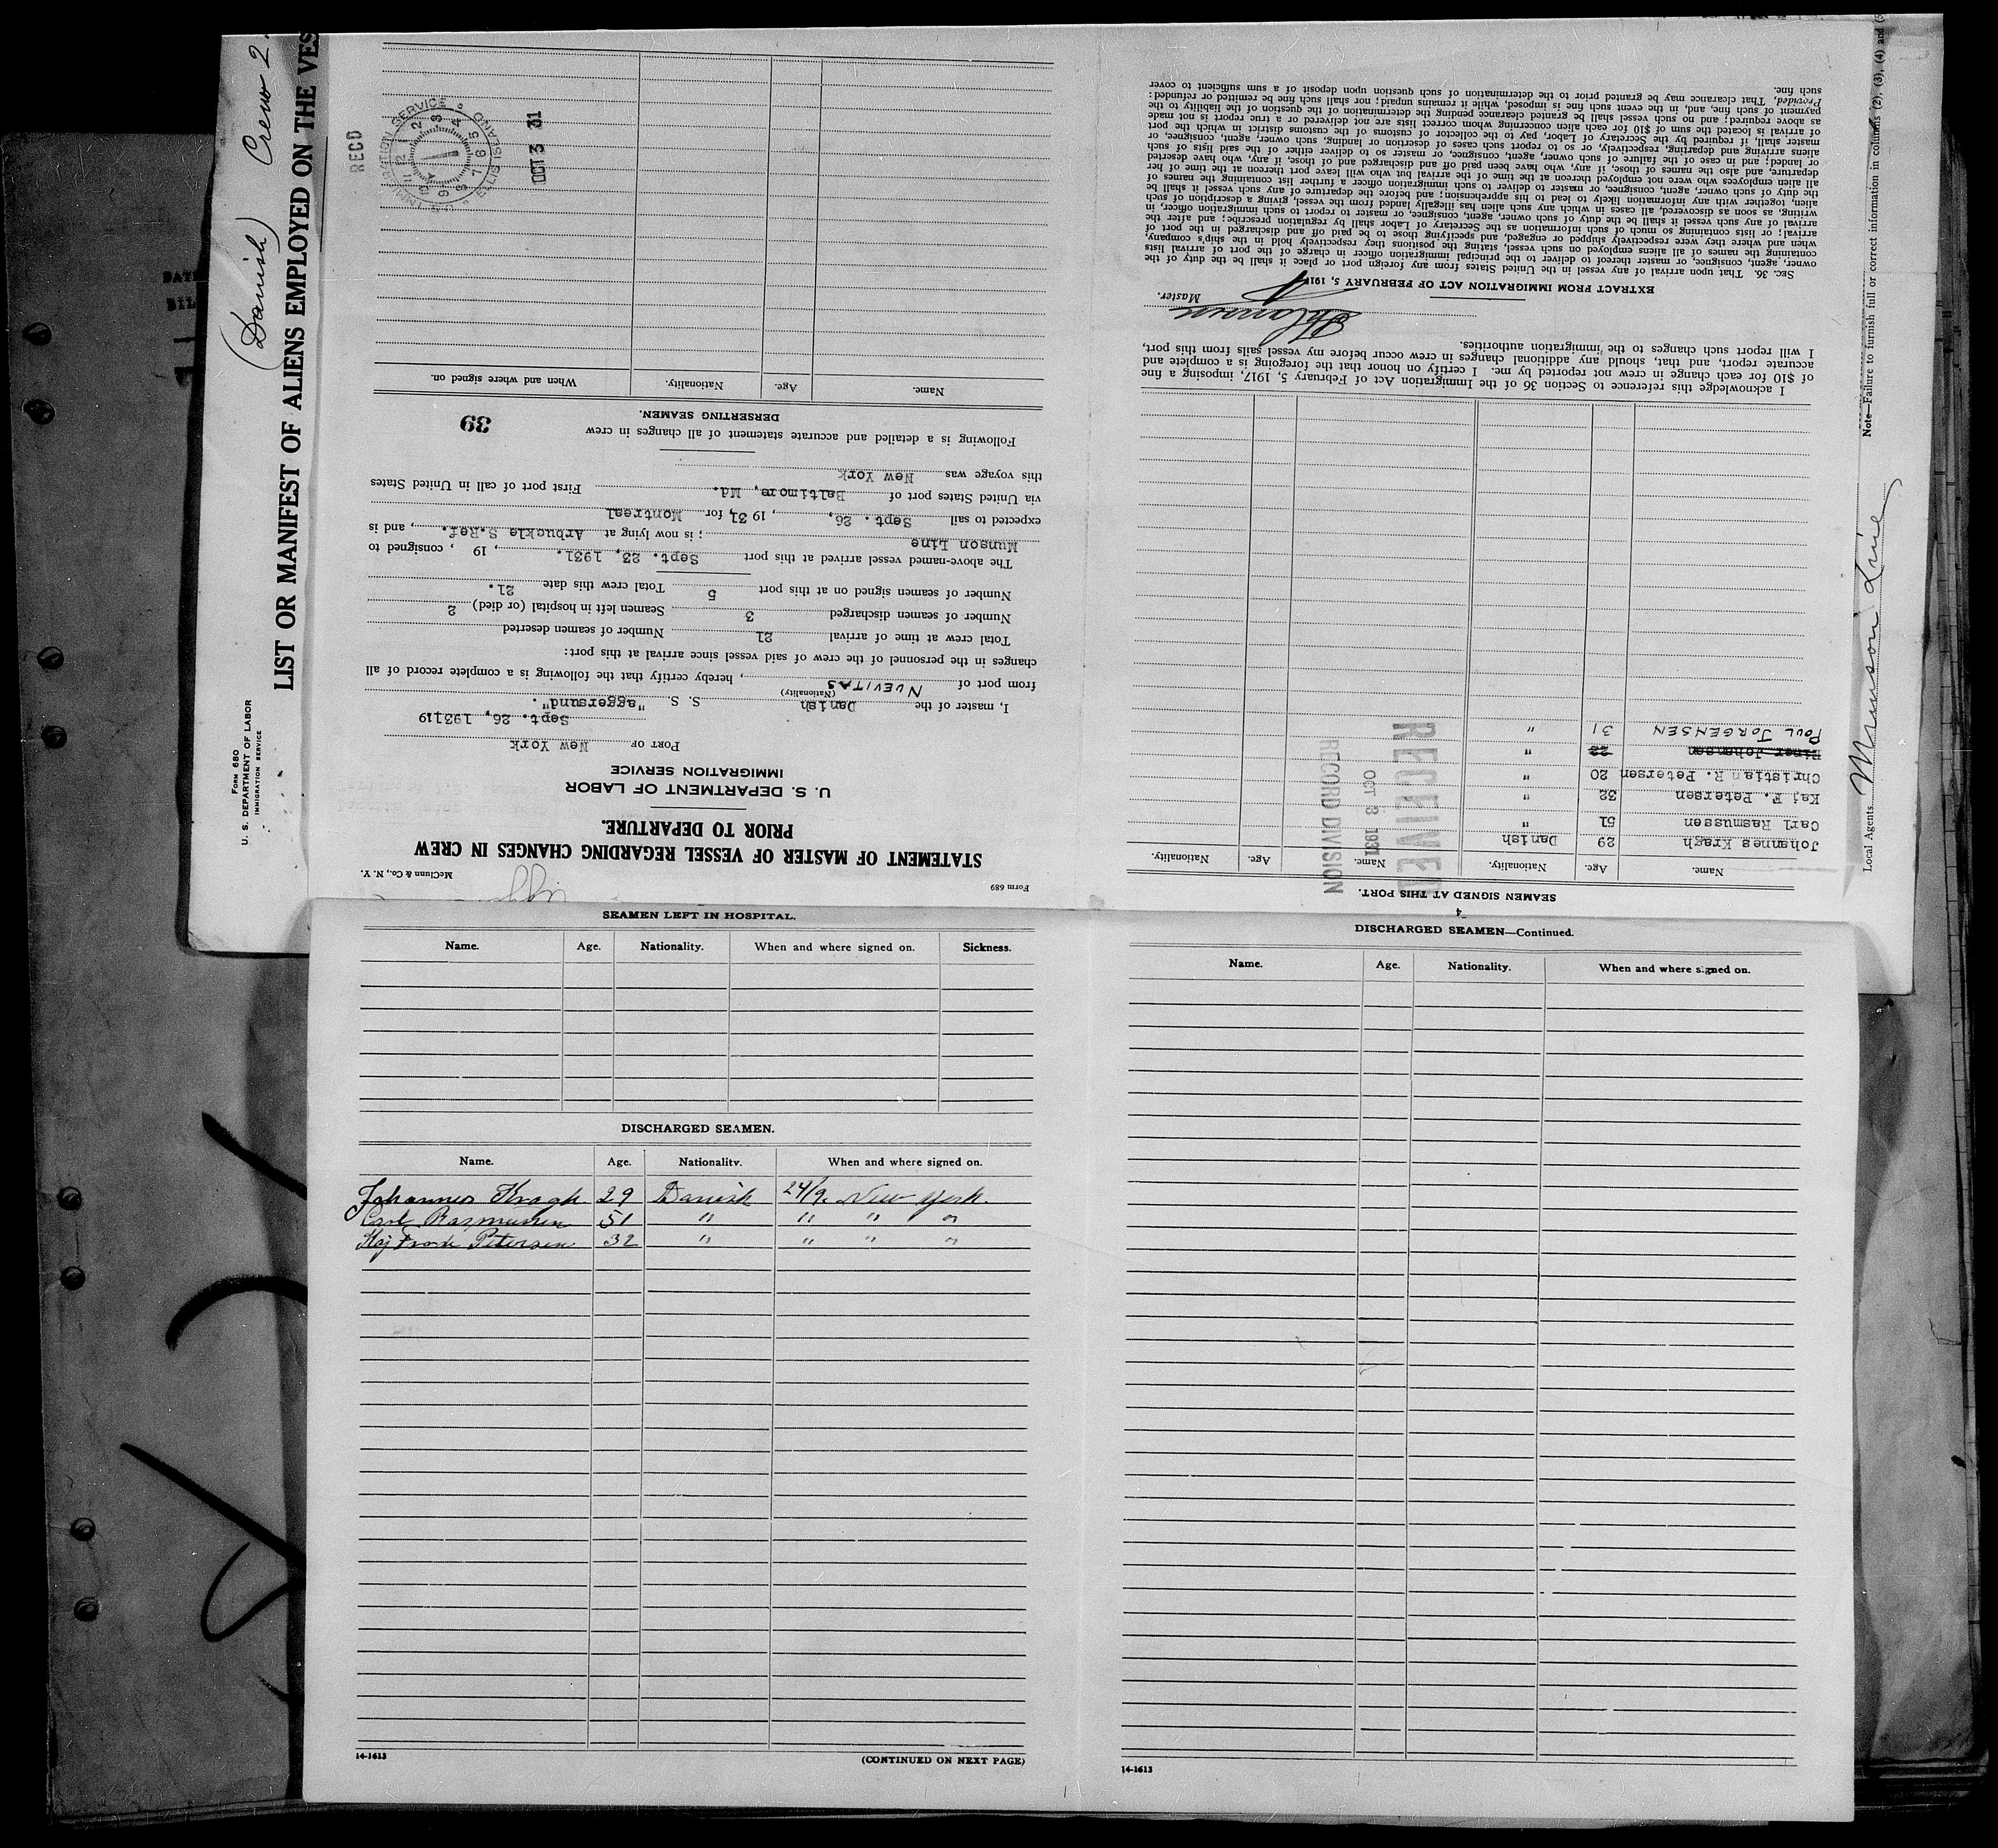 Form 680
U. S. DEPARTMENT OF LABOR
IMMIGRATION SERVICE
(Danish) Crew 2.
LIST OR MANIFEST OF ALIENS EMPLOYED ON THE VES
Form 689
McClunn & Co., N. Y.
STATEMENT OF MASTER OF VESSEL REGARDING CHANGES IN CREW
PRIOR TO DEPARTURE.
U. S. DEPARTMENT OF LABOR
IMMIGRATION SERVICE
PORT OF New York
Sept. 26, 193119
I, master of the Danish S. S. "aggersund".
(Nationality)
from port of NUEVITAS, hereby certify that the following is a complete record of all
changes in the personnel of the crew of said vessel since arrival at this port:
Total crew at time of arrival 21 Number of seamen deserted
Number of seamen discharged 3 Seamen left in hospital (or died) 2
Number of seamen signed on at this port 5 Total crew this date 21.
The above-named vessel arrived at this port Sept. 23, 1931. , 19 , consigned to
Munson Line ; is now lying at Arbuckle S.Ref. , and is
expected to sail Sept. 26, , 1931, for Montreal
via United States port of Baltimore, Md. First port of call in United States
this voyage was New York
Following is a detailed and accurate statement of all changes in crew
39
DERSERTING SEAMEN.
Name. Age. Nationality. When and where signed on.
RECD
IMMIGRATION SERVICE
ELLIS ISLAND
OCT 3 31
4
SEAMEN SIGNED AT THIS PORT.
Name. Age. Nationality. Name. Age. Nationality.
Johannes Kragh 29 Danish
Carl Rasmussen 51 "
Kaj F. Petersen 32 "
Christian R. Petersen 20 "
Einer Johansen 22 "
POUL JORGENSEN 31 "
RECEIVED
OCT 8 1931
RECORD DIVISION
I acknowledge this reference to Section 36 of the Immigration Act of February 5, 1917, imposing a fine
of $10 for each change in crew not reported by me. I certify on honor that the foregoing is a complete and
accurate report, and that, should any additional changes in crew occur before my vessel sails from this port,
I will report such changes to the immigration authorities.
Master.
EXTRACT FROM IMMIGRATION ACT OF FEBRUARY 5, 1917
SEC. 36. That upon arrival of any vessel in the United States from any foreign port or place it shall be the duty of the
owner, agent, consignee, or master thereof to deliver to the principal immigration officer in charge of the port of arrival lists
containing the names of all aliens employed on such vessel, stating the positions they respectively hold in the ship's company,
when and where they were respectively shipped or engaged, and specifying those to be paid off and discharged in the port of
arrival; or lists containing so much of such information as the Secretary of Labor shall by regulation prescribe; and after the
arrival of any such vessel it shall be the duty of such owner, agent, consignee, or master to report to such immigration officer, in
writing, as soon as discovered, all cases in which any such alien has illegally landed from the vessel, giving a description of such
alien, together with any information likely to lead to his apprehension; and before the departure of any such vessel it shall be
the duty of such owner, agent, consignee, or master to deliver to such immigration officer a further list containing the names of
all alien employees who were not employed thereon at the time of the arrival but who will leave port thereon at the time of her
departure, and also the names of those, if any, who have been paid off and discharged and of those, if any, who have deserted
or landed; and in case of the failure of such owner, agent, consignee, or master so to deliver either of the said lists of such
aliens arriving and departing, respectively, or so to report such cases of desertion or landing, such owner, agent, consignee, or
master shall, if required by the Secretary of Labor, pay to the collector of customs of the customs district in which the port
of arrival is located the sum of $10 for each alien concerning whom correct lists are not delivered or a true report is not made
as above required; and no such vessel shall be granted clearance pending the determination of the question of the liability to the
payment of such fine, and, in the event such fine is imposed, while it remains unpaid; nor shall such fine be remitted or refunded:
Provided, That clearance may be granted prior to the determination of such question upon deposit of a sum sufficient to cover
such fine.
Local Agents Munson Line
Note—Failure to furnish full or correct information in columns (2), (3), (4) and (5
SEAMEN LEFT IN HOSPITAL.
Name. Age. Nationality. When and where signed on. Sickness.
DISCHARGED SEAMEN.
Name. Age. Nationality. When and where signed on.
Johannes Kragh 29 Danish 24/9. New York.
Carl Rasmussen 51 " " " "
Kaj Frode Petersen 32 " " " "
14-1613
(CONTINUED ON NEXT PAGE)
DISCHARGED SEAMEN—Continued.
Name. Age. Nationality. When and where signed on.
14-1613